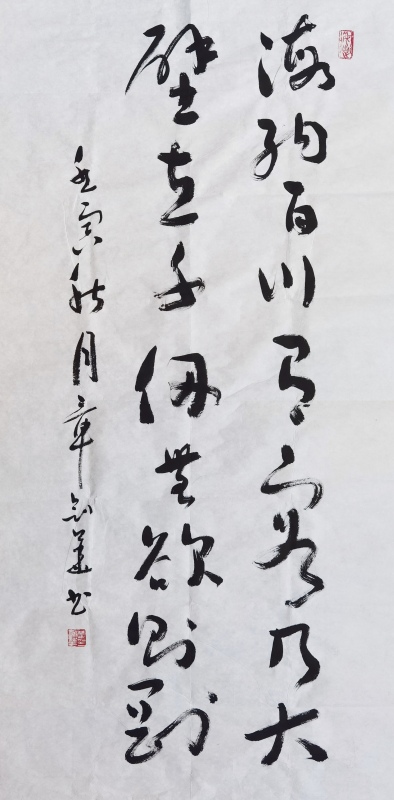 海纳百川有容乃大
壁立千仞無欲则刚
壬寅秋月章剑華书